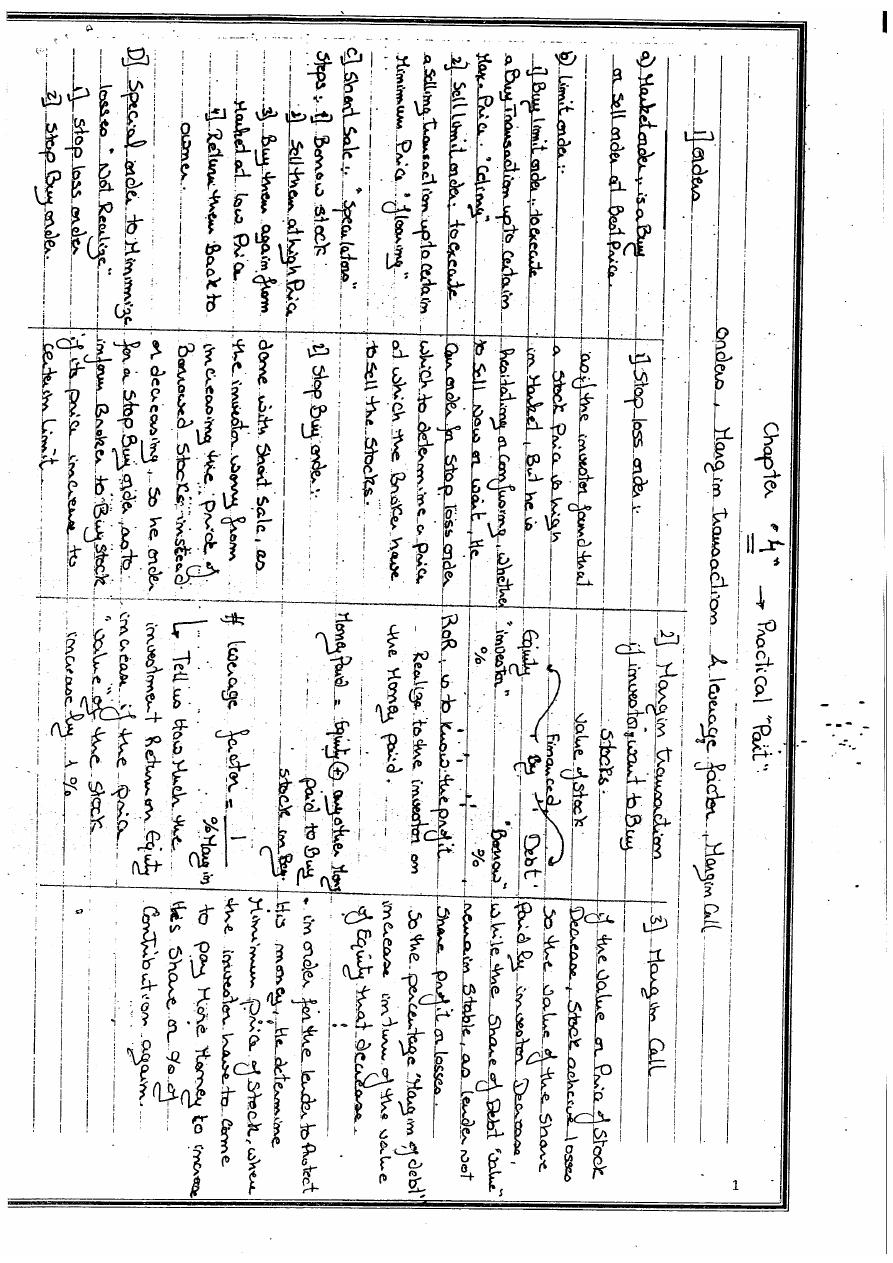 Chapter "4" → Practical "Part".
Orders, Margin transaction & leverage factor, Margin Call
1] Orders
a) Market order :, is a Buy
or sell order at Best Price.
b) Limit order :,
1] Buy limit order :, to execute
a Buy Transaction up to certain
Max. Price.
2] Sell limit order :, to execute
a selling transaction up to certain
Minimum Price "flooring"
C] Short Sale :, "Speculators"
Steps :, 1] Borrow stock
2] Sell them at high Price
3] Buy them again from
Market at low Price
4] Return them Back to
owner.
D] Special order to Minimize
losses "Not Realize"
1] Stop loss order
2] Stop Buy order.
1] Stop loss order :,
as, if the investor found that
a stock Price is high
in Market, But he is
hesitating or confusing, whether
to sell Now or wait, He
Can order for Stop loss order
which to determine a price
at which the Broker have
to sell the stocks.
2] Stop Buy order :,
done with Short Sale, as
the investor worry from
increasing the Price of
Borrowed stocks instead
or decreasing, So he order
for a Stop Buy order, as to
inform Broker to Buy stock
if its price increase to
certain limit.
2] Margin transaction
if investor want to Buy
stocks.
Value of stock
Financed
Equity By Debt
"investor" "Borrow"
% %
RoR, is to know the profit
- Realize to the investor on
the Money paid.
Money Paid = Equity (+) any other Money
paid to Buy
stock in Beg.
# leverage factor = 1
% Margin
↳ Tell us How Much the
investment Return on Equity
increase if the price
"value" of the stock
increase by 1%
3] Margin Call
if the value or Price of Stock
Decrease, Stock achieve losses
So the value of the share
Paid by investor Decrease,
while the Share of Debt "value"
remain Stable, as lender not
Share profit or losses.
So the percentage "Margin of debt"
increase in turn of the value
of Equity that decrease.
• in order for the lender to Protect
His money, He determine
Minimum price of Stock, where
the investor have to come
to pay More Money to increase
his Share or % of
Contribution again.
1